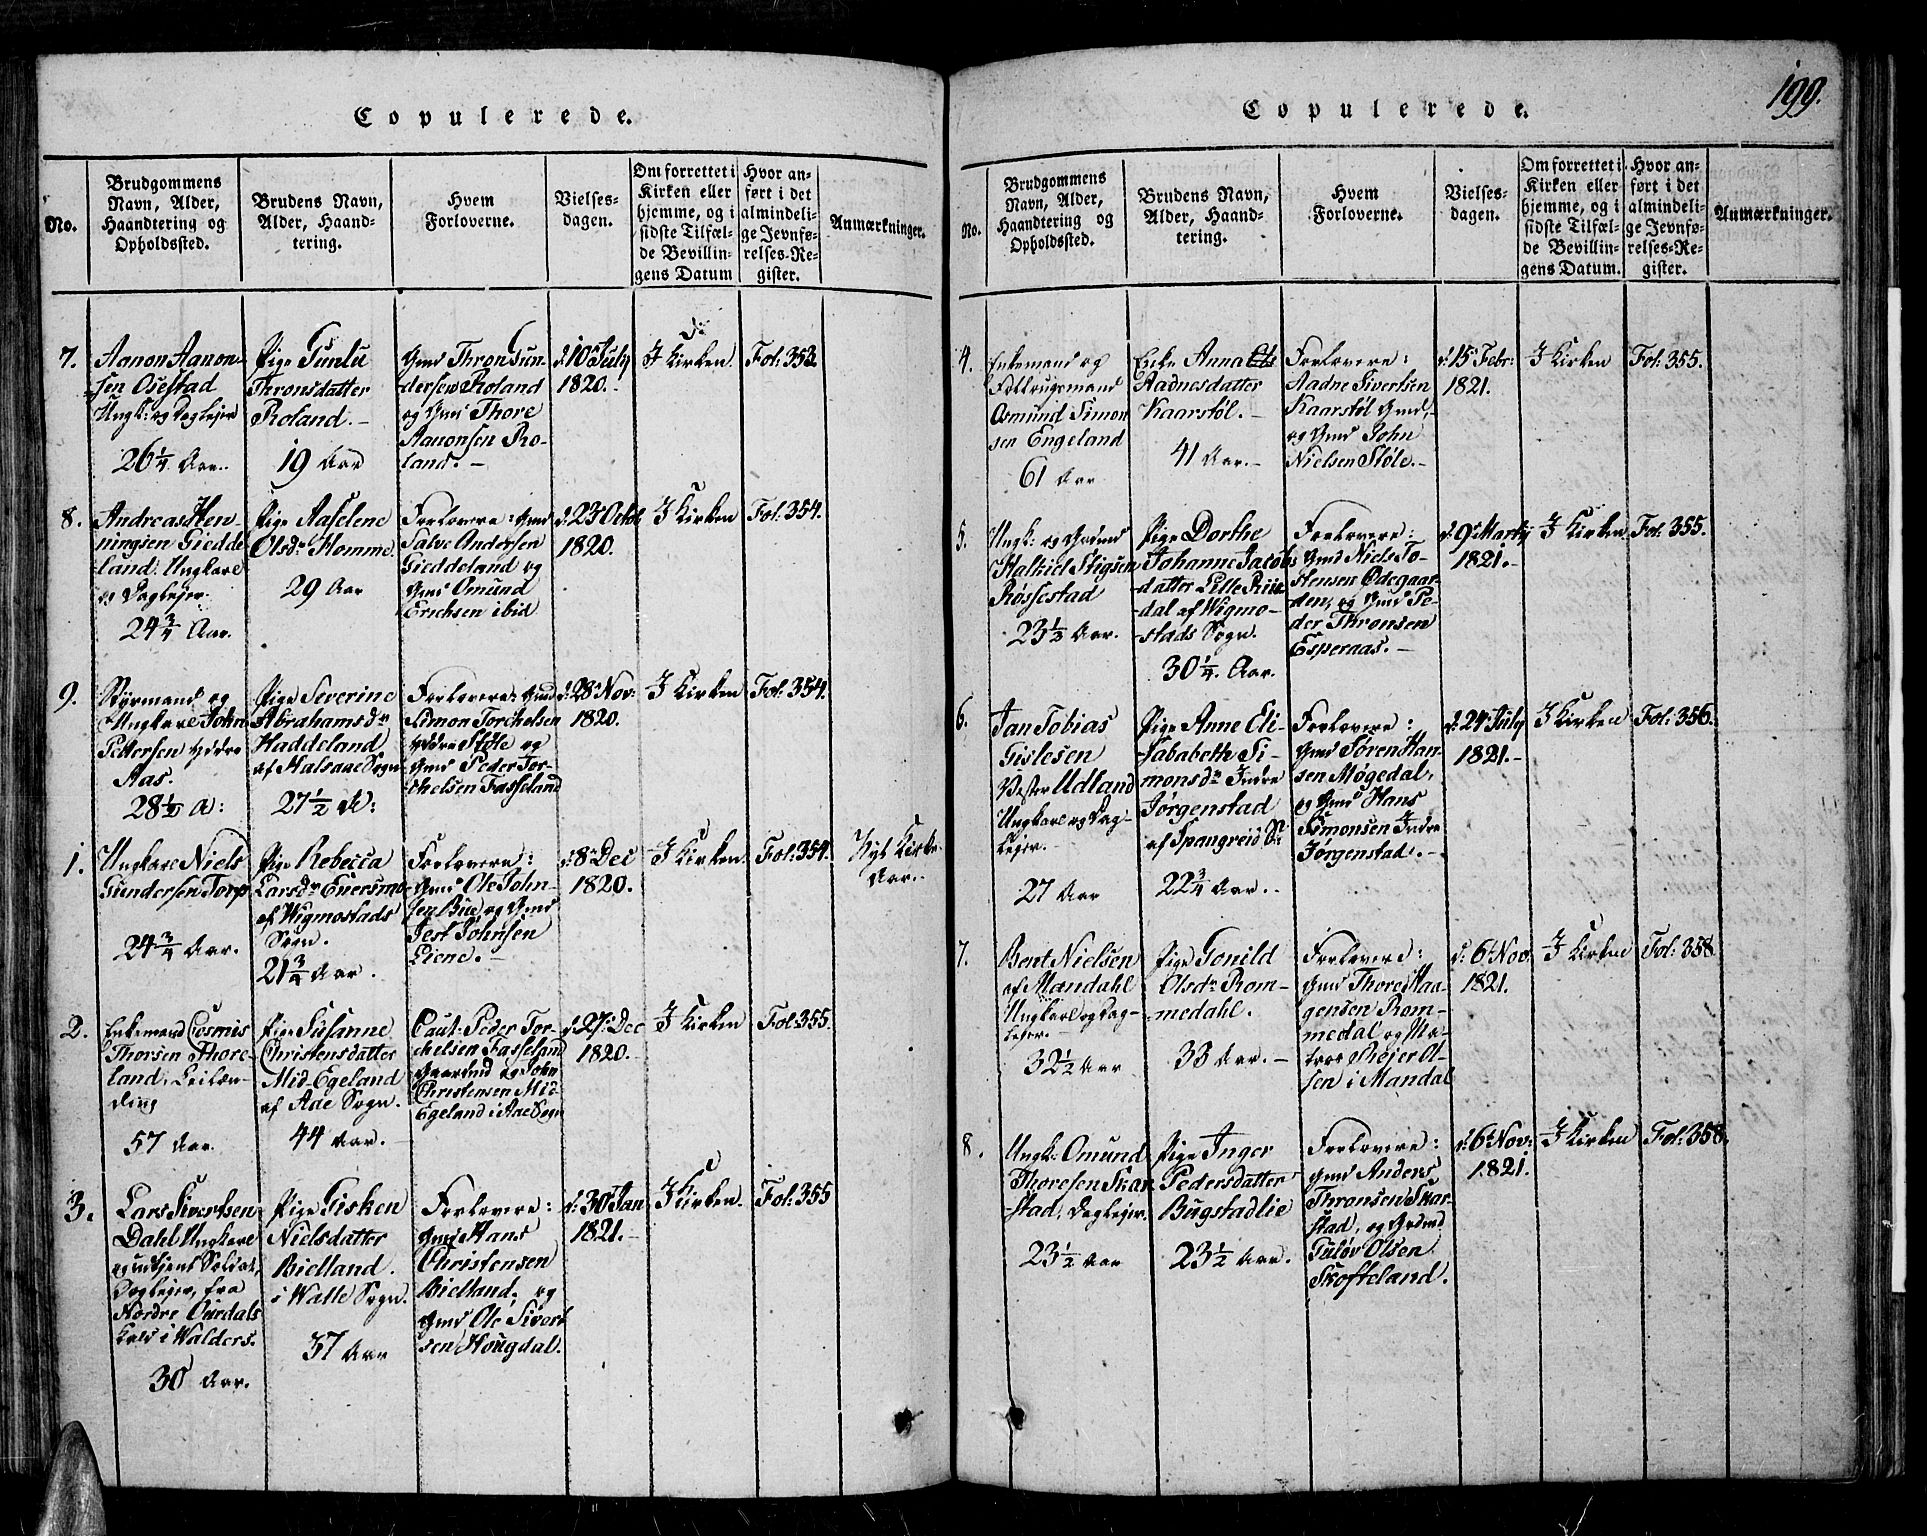 Copulerede.
No.
Brudgommens
Navn, Alder,
Haandtering og
Opholdssted.
Brudens Navn,
Alder, Haand-
tering.
Hvem
Forloverne.
Vielses-
dagen.
Om forrettet i
Kirken eller
hjemme, og i
sidste Tilfæl-
de Bevillin-
gens Datum
Hvor an-
ført i det
almindeli-
ge Jevnfø-
relses-Re-
gister.
Anmærkninger.
7.
Aanon Aanon-
sen Osestad
Ungk: og Daglejer
26 1/4 Aar.
Pige Gunlu
Thronsdatter
Roland.
19 Aar
Gmd Thron Gun-
dersen Roland
og Gmd Thore
Aanonsen Ro-
land.
d. 10 July
1820.
I Kirken
Fol: 353
8.
Andreas Hen-
ningsen Giedde-
land. Ungkarl
og Daglejer.
24 3/4 Aar.
Pige Aaselene
Olsdr Homme
29 Aar
Forlovere: Gmd
Salve Andersen
Gieddeland og
Gmd Omund
Erichsen ibid
d. 23 Octb
1820.
I Kirken
Fol: 354.
9.
Styrmand og
Ungkarl John
Pettersen Yddre
Aas.
28 1/2 A:
Pige Severine
Abrahamsdr
Haddeland
af Halsaae Sogn
27 1/2 A:
Forlovere: Gmd
Simon Torchelsen
Yddre Støle og
Gmd Peder Tor-
chelsen Fasseland
d. 28 Nov:
1820.
I Kirken
Fol: 354.
1.
Ungkarl Niels
Gundersen Torp
24 3/4 Aar.
Pige Rebecca
Larsdr Eversmo
af Wigmostads
Sogn.
21 3/4 Aar.
Forlovere:
Gmd Ole John-
sen Bue, og Gmd
Jest Johnsen
Liene.
d. 8 Dec
1820.
I Kirken
Fol: 354.
Nyt Kirke
Aar.
2.
Enkemand Cosmis
Thorsen Thore-
land, Leilæn-
ding
57 Aar.
Pige Susanne
Christensdatter
Mid-Egeland
af Aae Sogn.
44 Aar.
Caut: Peder Tor-
chelsen Fasseland
Gaardmd og John
Christensen Mid-
Egeland i Aae Sogn
d. 27. Dec
1820.
I Kirken
Fol: 355.
3.
Lars Sivertsen
Dahl Ungkarl
og udtjent Soldat,
Daglejer, fra
Nordre Ourdals
i Walders.
30 Aar.
Pige Gisken
Nielsdatter
Bielland.
i Walle Sogn.
37 Aar
Forlovere:
Gmd Hans
Christensen
Bielland, og
Gmd Ole Sivert
sen Hougdal.
d. 30 Jan
1821.
I Kirken.
Fol: 355
Copulerede.
199.
No.
Brudgommens
Navn, Alder,
Haandtering og
Opholdssted.
Brudens Navn,
Alder, Haand-
tering.
Hvem
Forloverne.
Vielses-
dagen.
Om forrettet i
Kirken eller
hjemme, og i
sidste Tilfæl-
de Bevillin-
gens Datum.
Hvor an-
ført i det
almindeli-
ge Jevnfø-
relses-Re-
gister.
Anmærkninger.
4.
Enkemand og
Osmund Simon
sen Engeland
61 Aar
Enke Anna
Aadnesdatter
Kaarstøl.
41 Aar.
Forlovere:
Aadne Sivertsen
Kaarstøl Gmd,
og Gmd John
Nielsen Støle.
d. 15 Febr:
1821.
I Kirken
Fol: 355.
5.
Ungk: og Gaardmd
Halkiel Stigsen
Røssestad
23 1/2 Aar.
Pige Dorthe
Johanne Jacobs
datter Lille Riis
dal af Wigmo-
stads Sogn.
30 1/4. Aar.
Forlovere:
Gmd Niels To-
stensen Ødegaar-
den, og Gmd Pe-
der Thronsen
Esperaas.
d. 9 Marty
1821.
I Kirken
Fol: 355.
6.
Jan Tobias
Gislesen
Vester Udland
Ungkarl og Dag-
lejer.
27 Aar
Pige Anne Eli-
sababeth Si-
monsdr Indre
Jørgenstad
af Spangreid Sn
22 3/4 Aar.
Forlovere:
Gmd Søren Han-
sen Møgedal,
og Gmd Hans
Simonsen Indre
Jørgenstad.
d. 24 July
1821.
I Kirken
Fol: 356.
7.
Bent Nielsen
af Mandahl
Ungkarl og Dag-
lejer.
32 1/2 Aar
Pige Gonild
Olsdr Rom-
medahl.
33 Aar.
Forlovere:
Gmd Thore Haa-
gensen Rom-
medal og Ma-
tros Rejer Ol-
sen i Mandal
d. 6 Nov.
1821.
I Kirken
Fol: 358
8.
Ungk: Omund
Thoresen Skar
stad, Daglejer.
23 1/2 Aar
Pige Inger
Pedersdatter
Bugstadlie
23 1/2 Aar.
Forlovere:
Gmd Anders
Thronsen Skar-
stad, og Grdmd
Tuløv Olsen
Skofteland.
d. 6 Nov:
1821.
I Kirken
Fol: 358.